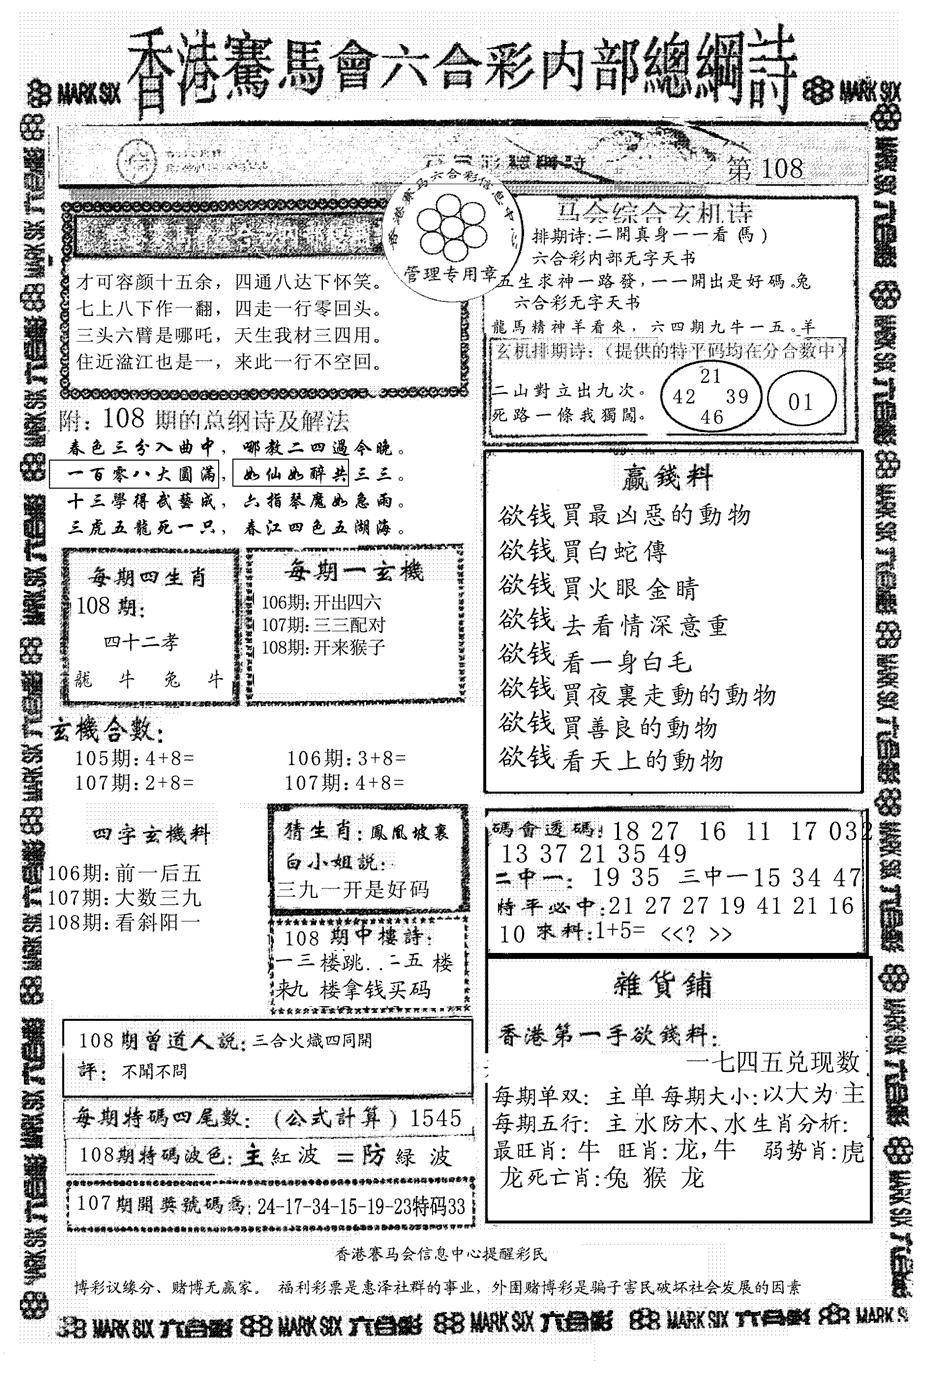 香港賽馬會六合彩内部總綱詩
MARK SIX
MARK SIX
第 108
香港赛马六合彩信息中
管理专用章
才可容颜十五余，四通八达下怀笑。
七上八下作一翻，四走一行零回头。
三头六臂是哪吒，天生我材三四用。
住近湓江也是一，来此一行不空回。
马会综合玄机诗
排期诗:二開真身一一看(馬)
六合彩内部无字天书
五生求神一路發，一一開出是好碼。兔
六合彩无字天书
龍馬精神羊看來，六四期九牛一五。羊
玄机排期诗:（提供的特平码均在分合数中）
二山對立出九次。
死路一條我獨闖。
21
42 39
46
01
附：108 期的总纲诗及解法
春色三分入曲中，哪教二四過今晚。
一百零八大圓滿，如仙如醉共三三。
十三學得武藝成，六指琴魔如急雨。
三虎五龍死一只，春江四色五湖海。
每期四生肖
108 期:
四十二孝
龍 牛 兔 牛
每期一玄機
106期:开出四六
107期:三三配对
108期:开来猴子
赢錢料
欲钱買最凶惡的動物
欲钱買白蛇傳
欲钱買火眼金睛
欲钱去看情深意重
欲钱看一身白毛
欲钱買夜裏走動的動物
欲钱買善良的動物
欲钱看天上的動物
玄機合數:
105期:4+8= 106期:3+8=
107期:2+8= 107期:4+8=
四字玄機料
106期:前一后五
107期:大数三九
108期:看斜阳一
猜生肖:鳳凰坡裏
白小姐説:
三九一开是好码
108 期中樓詩:
一三楼跳..二五 楼
来九 楼拿钱买码
碼會透碼:18 27 16 11 17 032
13 37 21 35 49
二中一: 19 35 三中一15 34 47
特平必中:21 27 27 19 41 21 16
10 來料:1+5= <<? >>
108期曾道人説:三合火熾四同開
評: 不聞不問
每期特碼四尾數:（公式計算）1545
108期特碼波色:主紅波 =防緑 波
107期開獎號碼為:24-17-34-15-19-23特码33
雜貨鋪
香港第一手欲錢料:
一七四五兑现数
每期单双: 主单 每期大小:以大为主
每期五行: 主水防木、水生肖分析:
最旺肖:牛 旺肖:龙,牛 弱势肖:虎
龙死亡肖:兔 猴 龙
香港賽马会信息中心提醒彩民
博彩议缘分、赌博无赢家。 福利彩票是惠泽社群的事业，外围赌博彩是骗子害民破坏社会发展的因素
MARK SIX 六合彩 MARK SIX 六合彩 MARK SIX 六合彩 MARK SIX 六合彩 MARK SIX